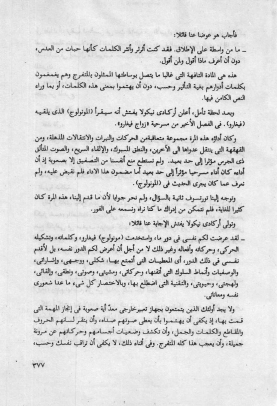 فأجاب هو عوضا عنا قائلا:
ـ ما من واسطة على الإطلاق. فقد كنت أنثر وأنثر الكلمات كأنها حبات من العدس،
دون أن أعرف ماذا أقول ولمن أقول.
هذه هي المادة التافهة التي غالبا ما يتصل بوساطتها الممثلون بالمتفرج وهم يغمغمون
بكلمات أدوارهم بغية التأثير وحسب، دون أن يهتموا بمعنى هذه الكلمات، أو بما وراء
النص الكامن فيها.
وبعد لحظة تأمل، أعلن أركادي نيكولا يفتش أنه سيقرأ (المونولوج) الذي يلقيه
(فيغارو) في الفصل الأخير من مسرحية «زواج فيغارو».
وكان أداؤه هذه المرة مجموعة متماسكة من الحركات والنبرات والانتقالات المذهلة، ومن
القهقهة التي ينتقل عدواها الى الآخرين، والنطق المسبوك، والإلقاء السريع، والصوت المتألق
ذي الجرس مؤثرا إلى حد بعيد. ولم نستطع منع أنفسنا من التصفيق إلا بصعوبة إذ أن
أداءه كان أداء مسرحيا مؤثرا إلى حد بعيد أما مضمون هذا الاداء فلم نقبض عليه، ولم
نعرف عما كان يجري الحديث في (المونولوج).
وتوجه إلينا تورتسوف ثانية بالسؤال، ولم نحر جوابا لأن ما قدم إلينا، هذه المرة كان
كثيرا للغاية، فلم نتمكن من إدراك ما كنا نراه ونسمعه على الفور.
وتولى أركادي نيكولا يفتش الإجابة عنا قائلا:
ـ لقد عرضت لكم نفسي في دور ما، واستخدمت «مونولوج» فيغارو، وكلماته، وتشكيله
الحركي، وحركاته وأفعاله وغير ذلك لا من أجل أن أعرض لكم الدور نفسه، بل لأقدم
نفسي في ذلك الدور، أي المعطيات التي أتمتع بها: شكلي، ووجهي، وإشاراتي،
والوضعيات وأنماط السلوك التي أتقنها، وحركاتي، ومشيتي، وصوتي، ونطقي، وإلقائي،
ولهجتي، وحيويتي، والتقنية التي اضطلع بها، وبالاختصار كل شيء ما عدا شعوري
نفسه ومعاناتي.
ولا يجد أولئك الذين يتمتعون بجهاز تعبير خارجي معدّ أية صعوبة في إنجاز المهمة التي
قمت بها، إذ يكفي أن يهتموا بأن يعطي صوتهم صداه، وأن ينقر لسانهم الحروف
والمقاطع والكلمات والجمل، وأن تكشف وضعيات أجسامهم وحركاتهم عن مرونة
جميلة، وأن يعجب هذا كله المتفرج. وفي أثناء ذلك، لا يكفي أن نراقب أنفسنا وحسب،
٣٧٧